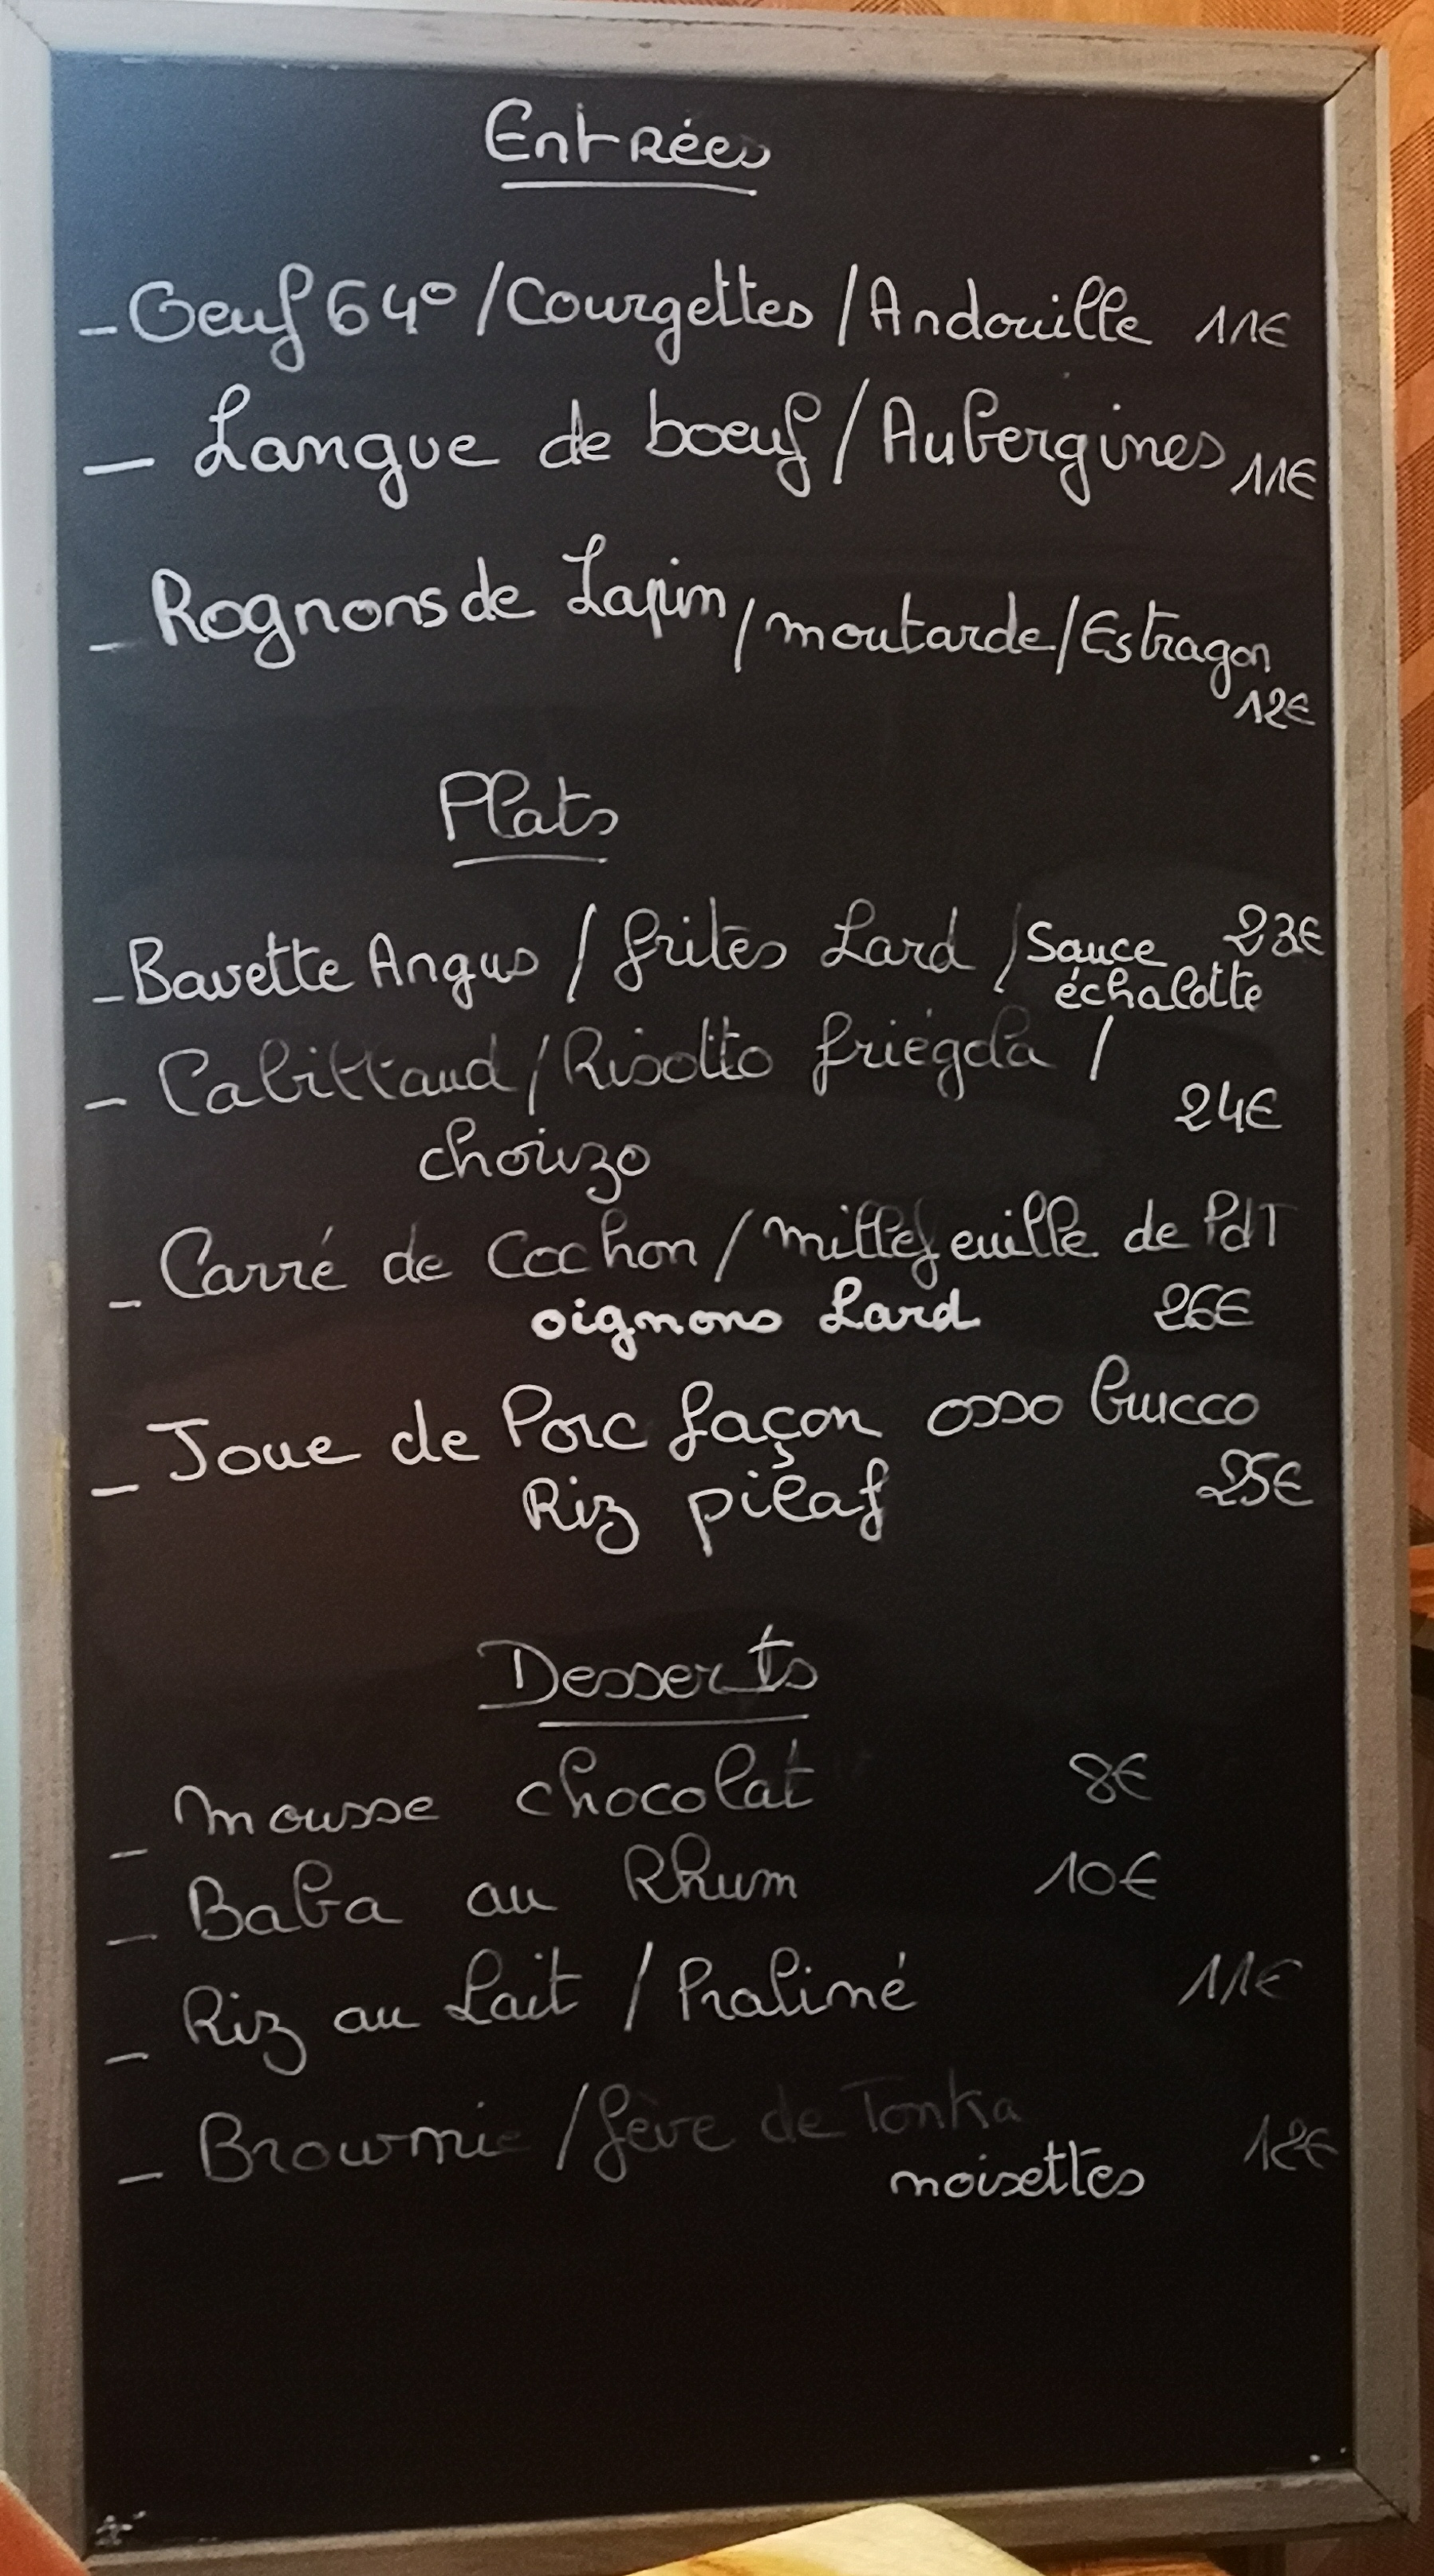 Entrées
- Oeuf 64° / Courgettes / Andouille 11€
- Langue de boeuf / Aubergines 11€
- Rognons de Lapin / moutarde / Estragon
12€
Plats
- Bavette Angus / frites Lard / Sauce 23€
échalotte
- Cabillaud / Risotto friégola /
24€
chorizo
- Carré de Cochon / millefeuille de PdT
oignons Lard 26€
- Joue de Porc façon osso bucco
Riz pilaf 25€
Desserts
- mousse chocolat 8€
- Baba au Rhum 10€
- Riz au Lait / Praliné 11€
- Brownie / fève de Tonka 12€
noisettes